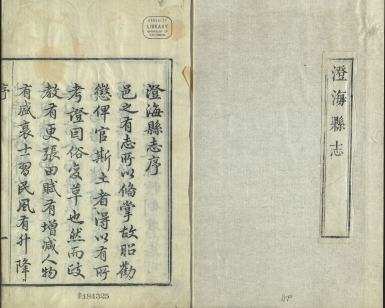 澄海縣志
澄海縣志序
邑之有志所以偹掌故昭勸
懲俾官斯土者得以有所
考證因俗变革也然而政
教有更張田賦有增減人物
有盛衰士習民風有升降
序
一
LIBRARY